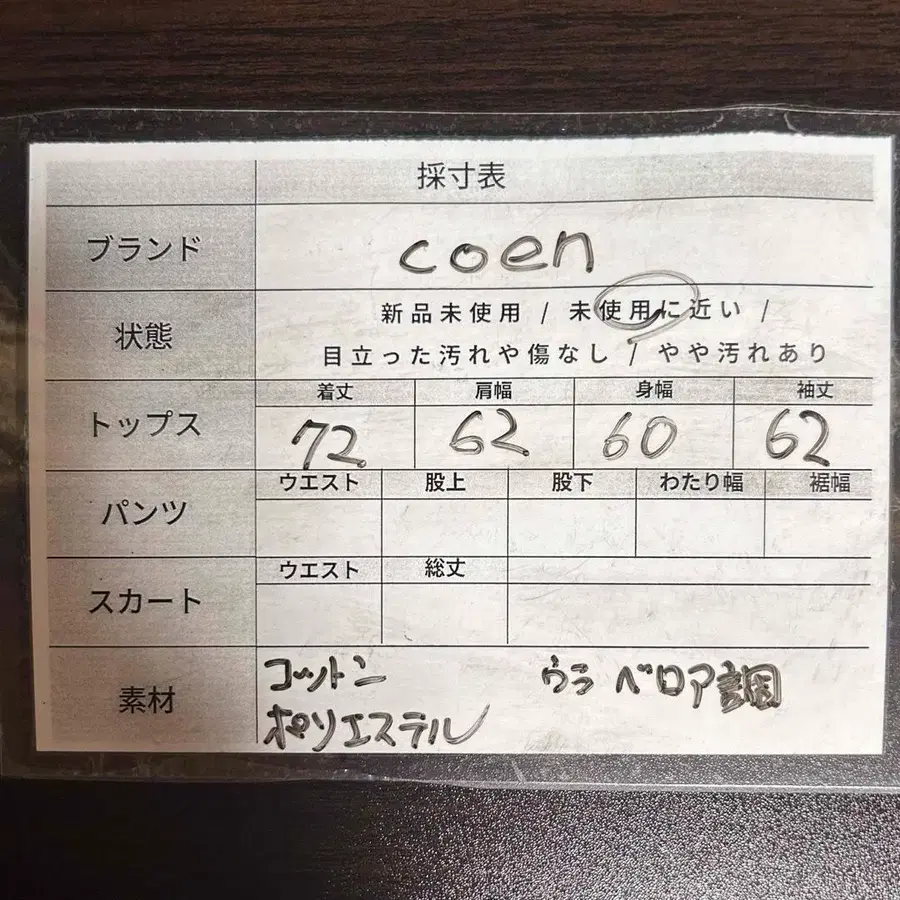 採寸表
ブランド coen
新品未使用 / 未使用に近い /
状態
目立った汚れや傷なし / やや汚れあり
着丈 肩幅 身幅 袖丈
トップス 72 62 60 62
ウエスト 股上 股下 わたり幅 裾幅
パンツ
ウエスト 総丈
スカート
コットン ウラ ベロア調
素材
ポリエステル